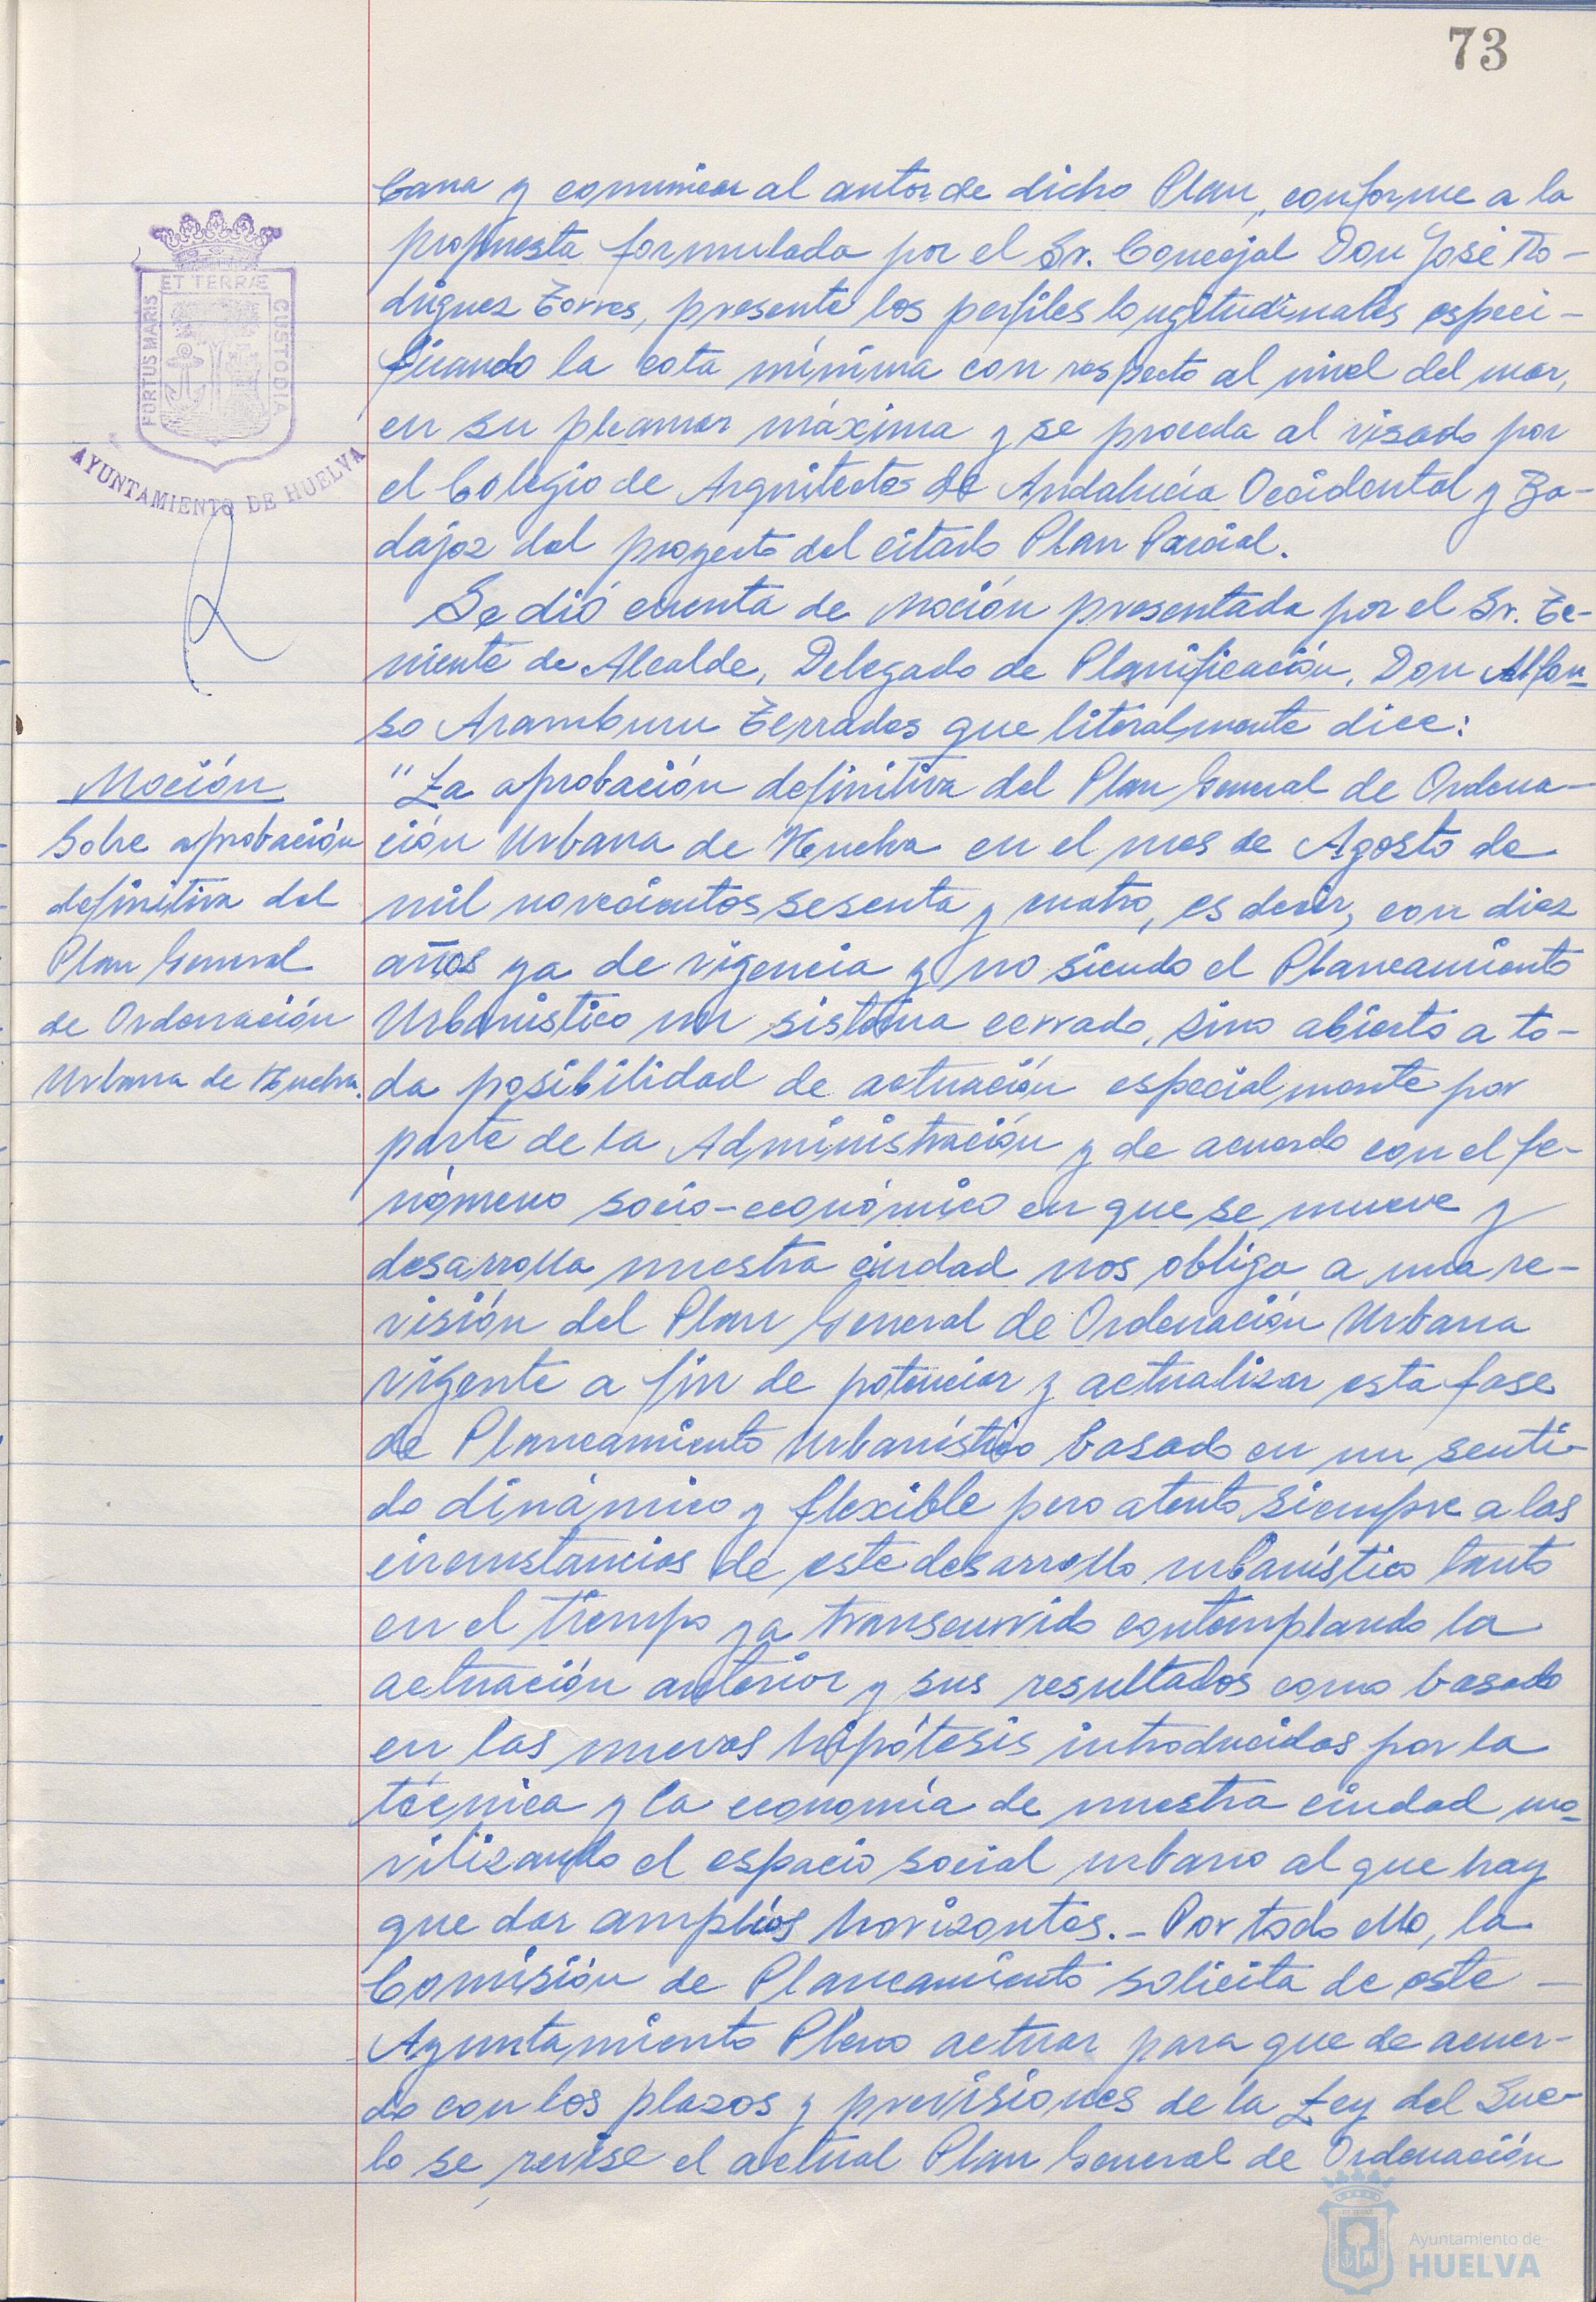 73
bana y comunicar al autor de dicho Plan, conforme a la
propuesta formulada por el Sr. Concejal Don José Ro-
driguez Torres, presente los perfiles longitudinales especi-
ficando la cota mínima con respecto al nivel del mar,
en su pleamar máxima y se proceda al visado por
el Colegio de Arquitectos de Andalucía Occidental y Ba-
dajoz del proyecto del citado Plan Parcial.
Se dió cuenta de moción presentada por el Sr. Te-
niente de Alcalde, Delegado de Planificación, Don Alfon-
so Aramburu Terrades que literalmente dice:
"La aprobación definitiva del Plan General de Ordena-
ción Urbana de Huelva en el mes de Agosto de
mil novecientos sesenta y cuatro, es decir, con diez
años ya de vigencia y no siendo el Planeamiento
Urbanístico un sistema cerrado, sino abierto a to-
da posibilidad de actuación especialmente por
parte de la Administración y de acuerdo con el fe-
nómeno socio-económico en que se mueve y
desarrolla nuestra ciudad nos obliga a una re-
visión del Plan General de Ordenación Urbana
vigente a fin de potenciar y actualizar esta fase
de Planeamiento Urbanístico basado en un senti-
do dinámico y flexible pero atento siempre a las
circunstancias de este desarrollo urbanístico tanto
en el tiempo ya transcurrido contemplando la
actuación anterior y sus resultados como basado
en las nuevas hipótesis introducidas por la
técnica y la economía de nuestra ciudad mo-
vilizando el espacio social urbano al que hay
que dar amplios horizontes.- Por todo ello, la
Comisión de Planeamiento solicita de este -
Ayuntamiento Pleno actuar para que de acuer-
do con los plazos y previsiones de la Ley del Sue-
lo se revise el actual Plan General de Ordenación
PORTUS MARIS ET TERRÆ CUSTODIA
AYUNTAMIENTO DE HUELVA
Moción
Sobre aprobación
definitiva del
Plan General
de Ordenación
Urbana de Huelva.
Ayuntamiento de
HUELVA